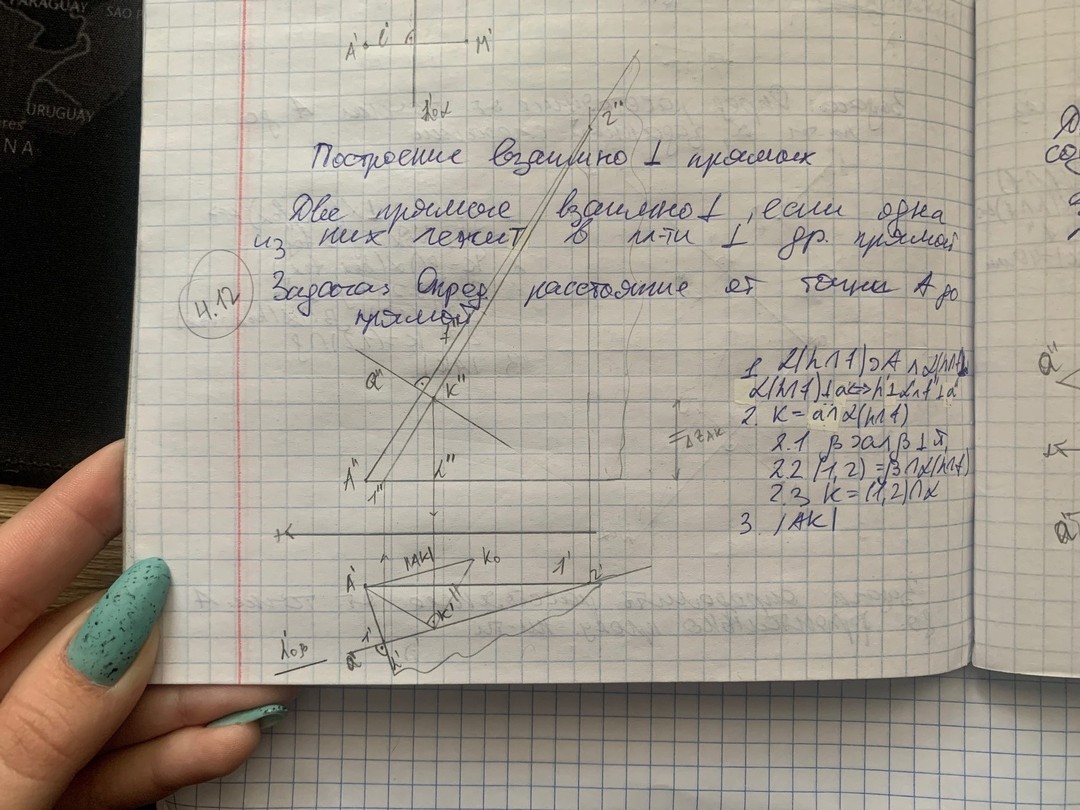 PARAGUAY
SAO P
URUGUAY
NA
A' M'
2''
Построение взаимно ⊥ прямых
Две прямые взаимно ⊥, если одна
из них лежит в пл-ти ⊥ др. прямой
4.12
Задача: Опред. расстояние от точки A до
прямой
a'' K''
A'' 1'' h''
ΔZAK
1. α(h∩f)∋A ∧ α(h∩f)
α(h∩f)⊥a⇔h'⊥a'∧f''⊥a''
2. K = a∩α(h∩f)
2.1 β∋a∧β⊥π
2.2 (1,2) = β∩α(h∩f)
2.3 K = (1,2)∩a
3. |AK|
x
A' |AK| K₀ f' 2'
K'
a' 1' h'
a''